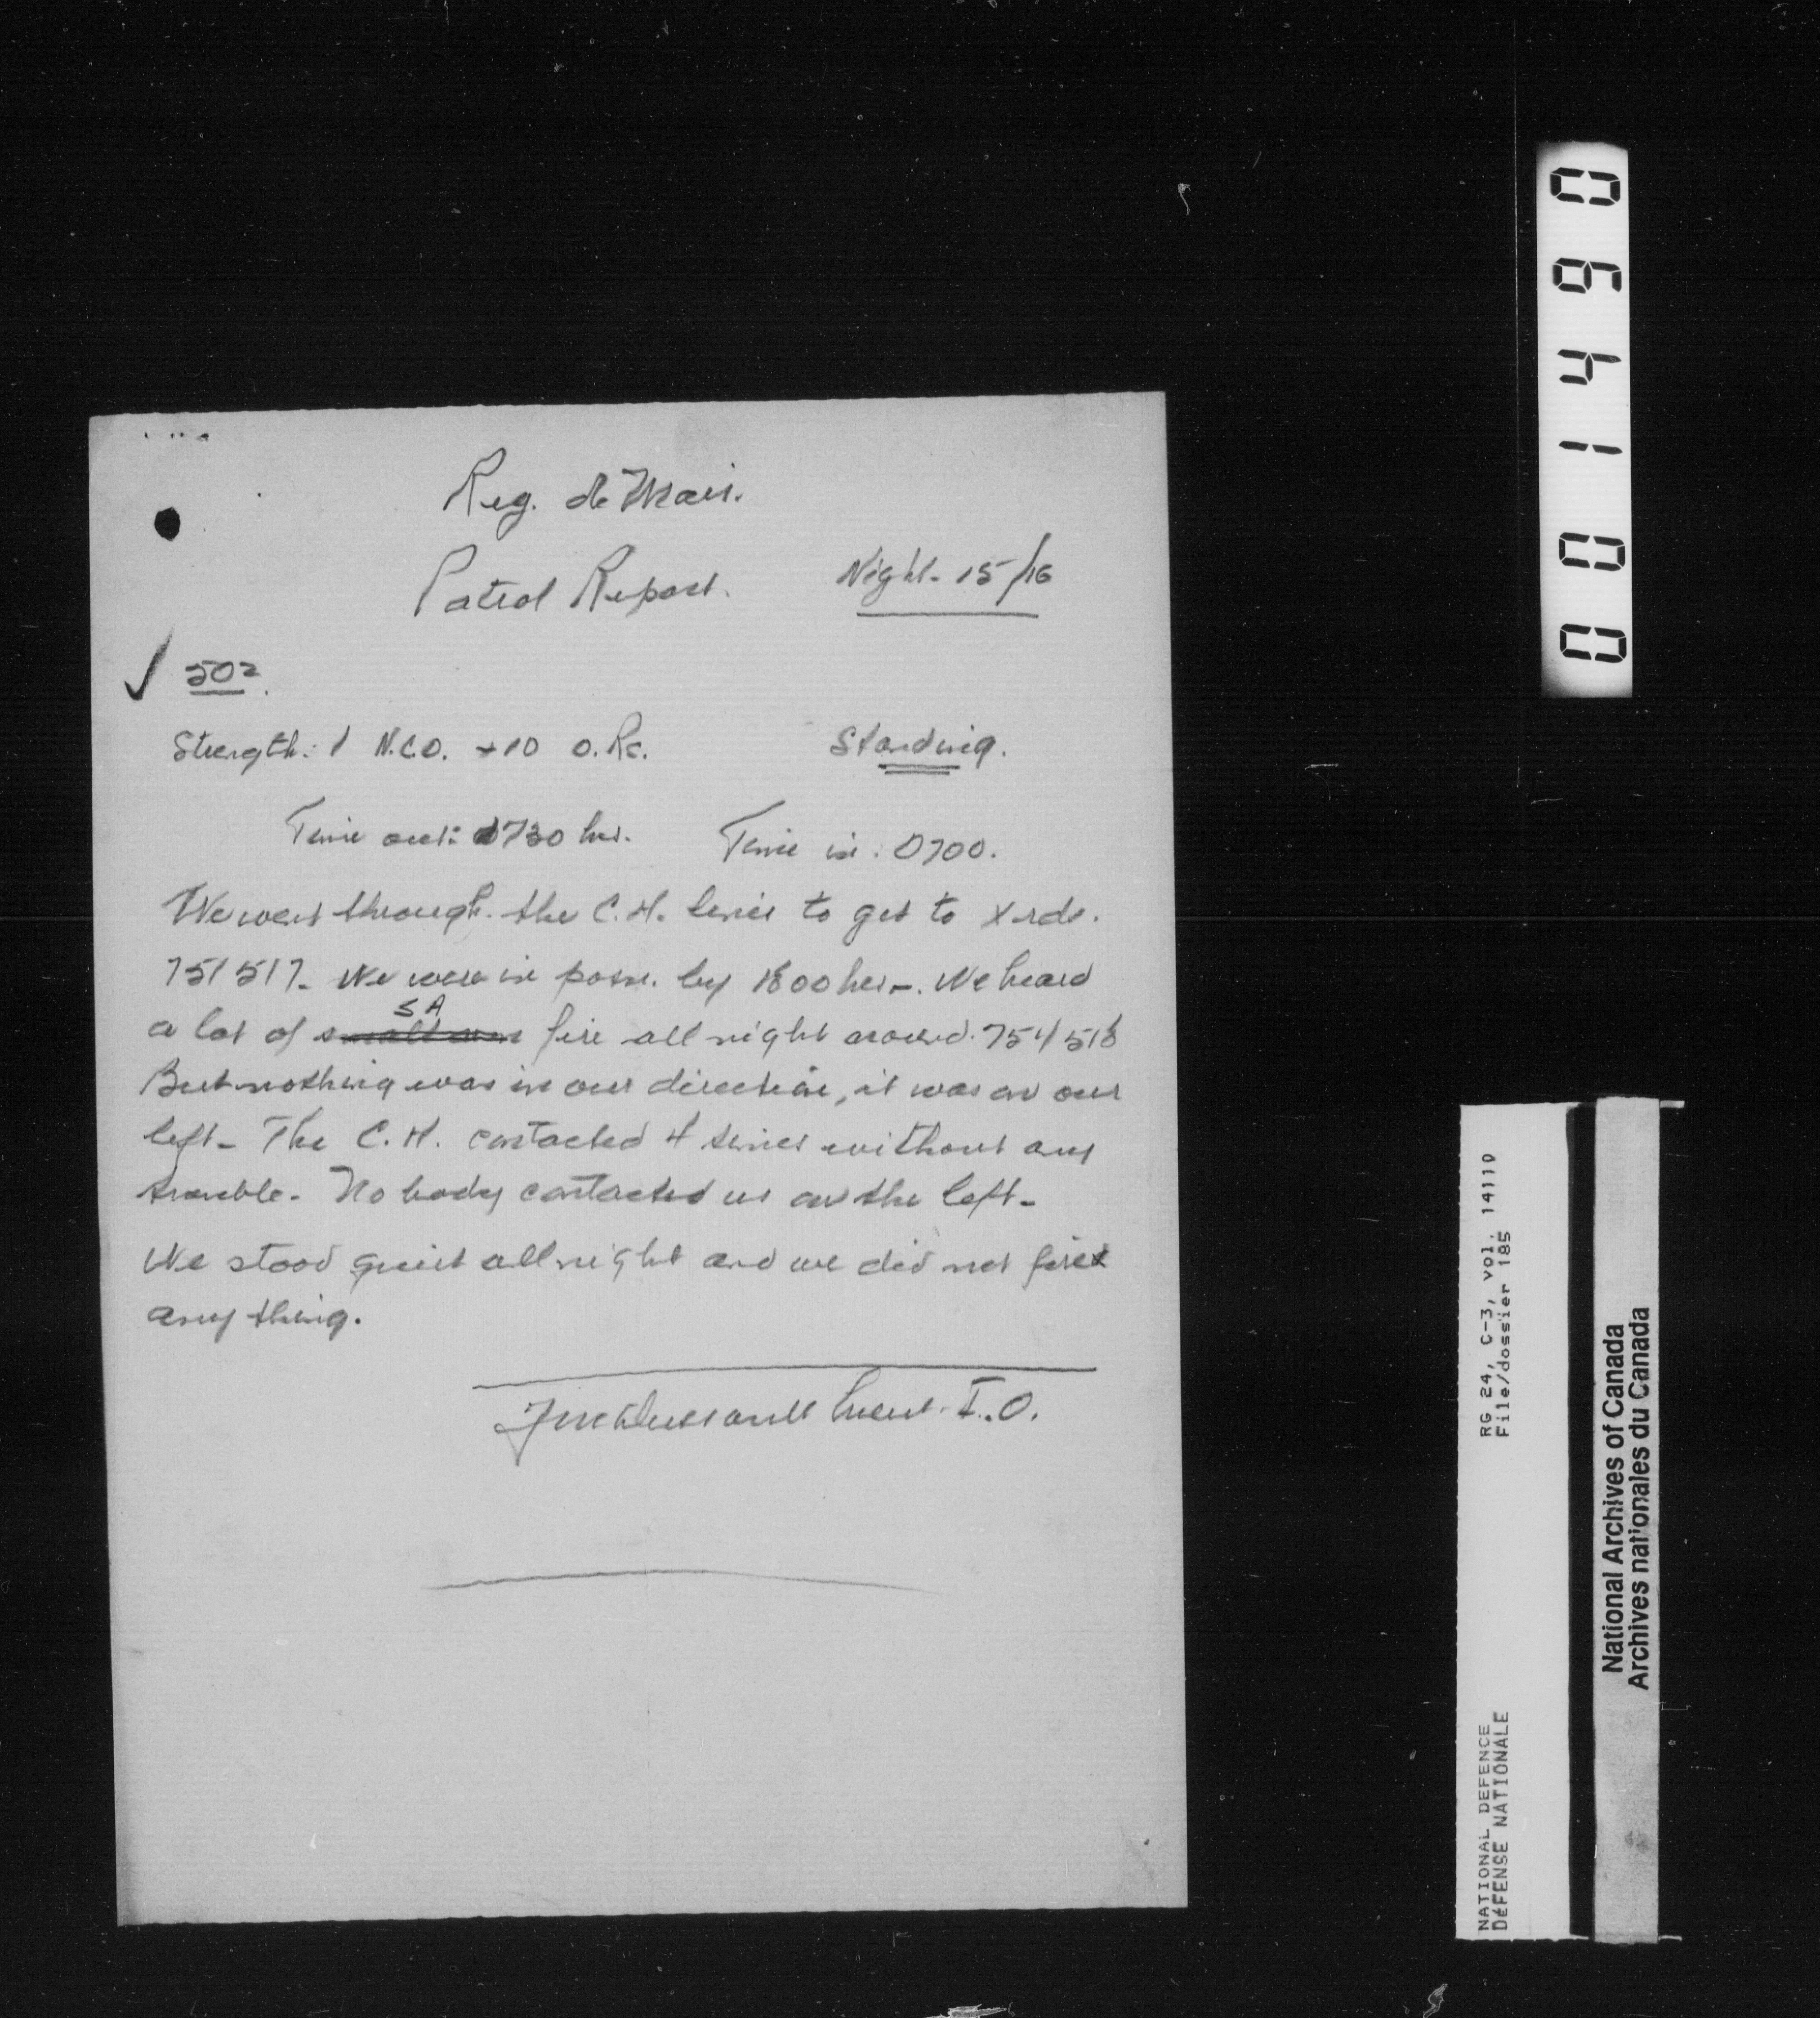 Reg. de Mais.
Patrol Report. Night. 15/16
502.
Strength: 1 N.C.O. + 10 O.Rs. Standing.
Time out: 1730 hrs. Time in: 0700.
We went through the C.H. lines to get to X rds.
751517. We were in posn. by 1800 hrs. We heard
a lot of small arm SA fire all night around 754518
But nothing was in our direction, it was on our
left. The C.H. contacted 4 times without any
trouble. No body contacted us on the left.
We stood quiet all night and we did not fire
any thing.
Lieut. I.O.
001490
RG 24, C-3, vol. 14110
File/dossier 185
NATIONAL DEFENCE
DÉFENSE NATIONALE
National Archives of Canada
Archives nationales du Canada